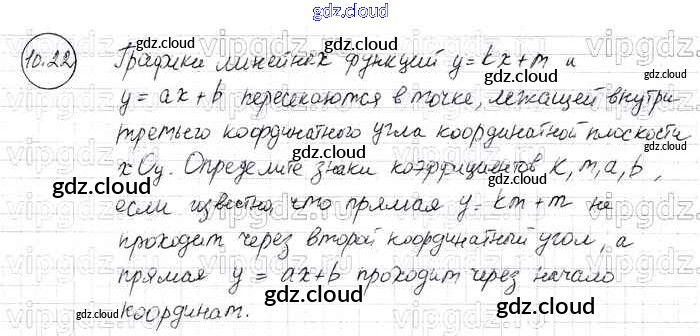 gdz.cloud
10.22 Графики линейных функций y=kx+m и
y=ax+b пересекаются в точке, лежащей внутри
третьего координатного угла координатной плоскости
xOy. Определите знаки коэффициентов k, m, a, b,
если известно, что прямая y=km+m не
проходит через второй координатный угол, а
прямая y=ax+b проходит через начало
координат.
gdz.cloud
gdz.cloud
gdz.cloud
gdz.cloud
gdz.cloud
gdz.cloud
gdz.cloud
gdz.cloud
gdz.cloud
gdz.cloud
gdz.cloud